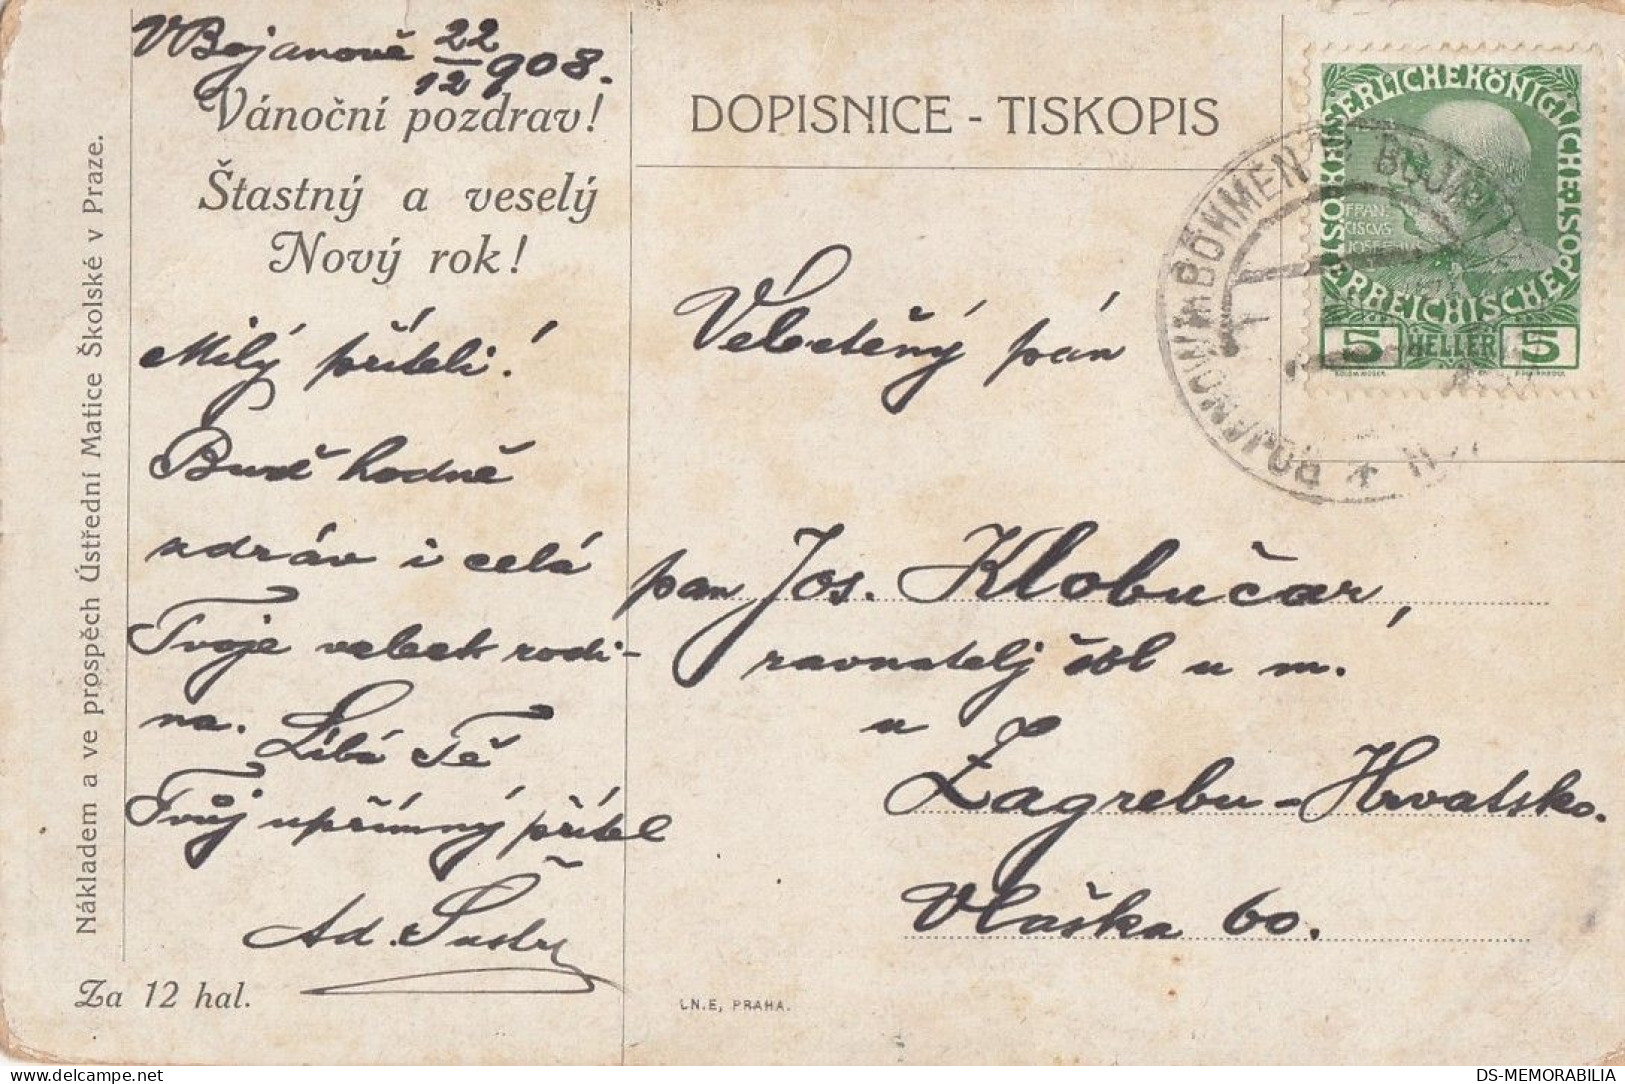 V Bojanově 22/12 908.
Vánoční pozdrav!
Štastný a veselý
Nový rok!
Milý příteli!
Buď hodně
zdráv i celá
Tvoje velect. rodi-
na. Líbá Tě
Tvůj upřímný přítel
Ad. Šustr
Nákladem a ve prospěch Ústřední Matice Školské v Praze.
Za 12 hal.
DOPISNICE - TISKOPIS
KAISERLICHEKÖNIGLICHE
ÖSTERREICHISCHEPOST
FRAN-
CISCVS
JOSEPHVS
5 HELLER 5
BOJANOV IN BÖHMEN
Velectěný pán
pan Jos. Klobučar,
ravnatelj škol u m.
u
Zagrebu-Hrvatsko.
Vlaška 60.
LN.E, PRAHA.
DS-MEMORABILIA